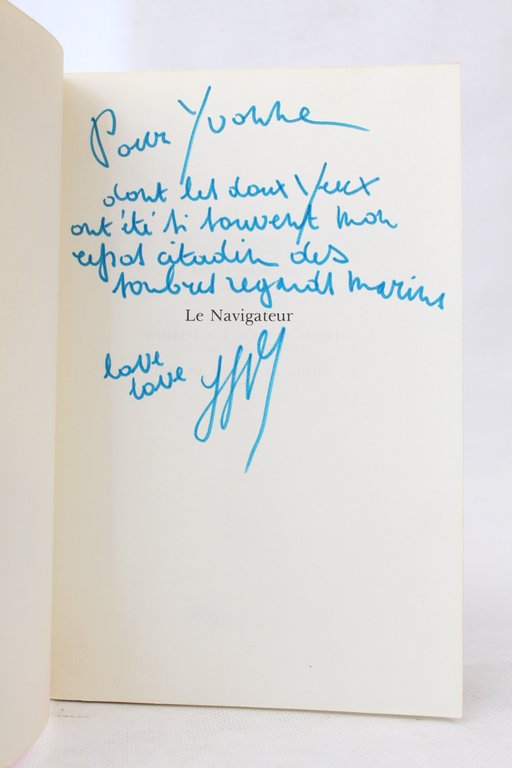 Pour Yvonne
dont les doux Yeux
ont été si souvent mon
repos citadin des
sombres regards marins
Le Navigateur
love
love